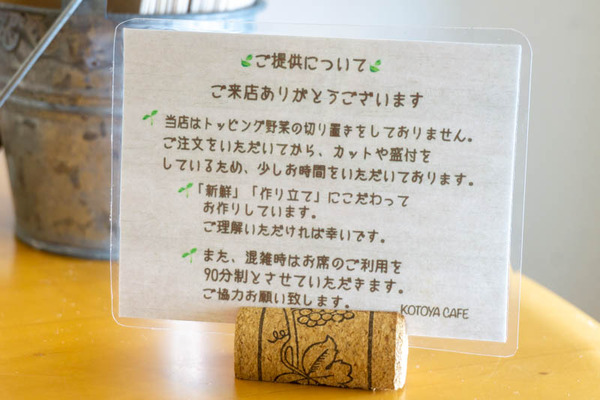 ご提供について
ご来店ありがとうございます
当店はトッピング野菜の切り置きをしておりません。
ご注文をいただいてから、カットや盛付を
しているため、少しお時間をいただいております。
「新鮮」「作り立て」にこだわって
お作りしています。
ご理解いただければ幸いです。
また、混雑時はお席のご利用を
90分制とさせていただきます。
ご協力お願い致します。
KOTOYA CAFE